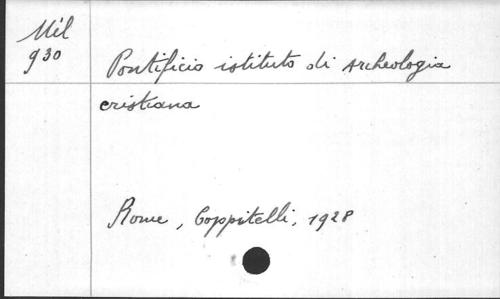 Mél
930
Pontificio istituto di archeologia
cristiana
Rome, Coppitelli, 1928